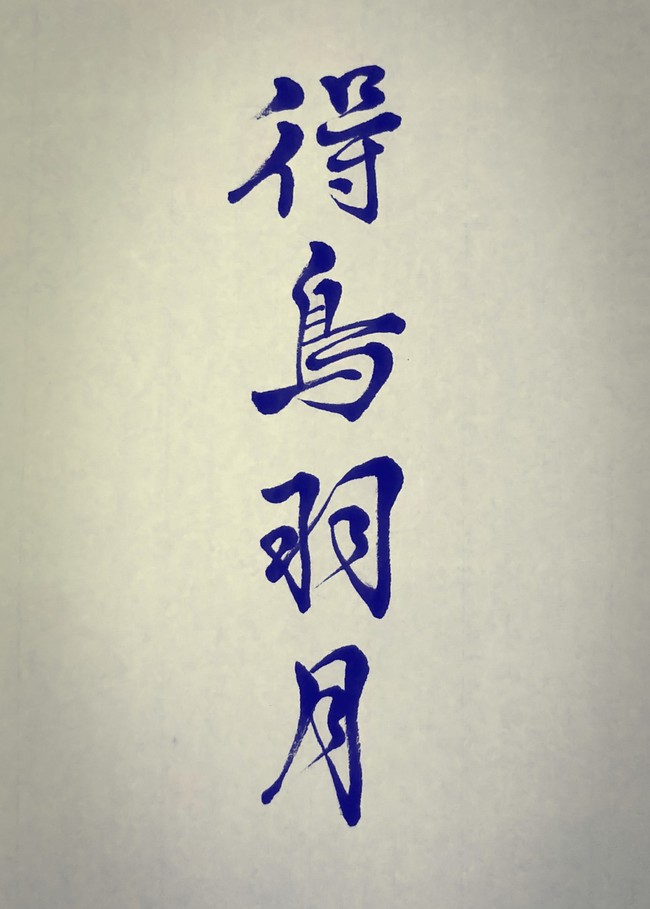 得鳥羽月